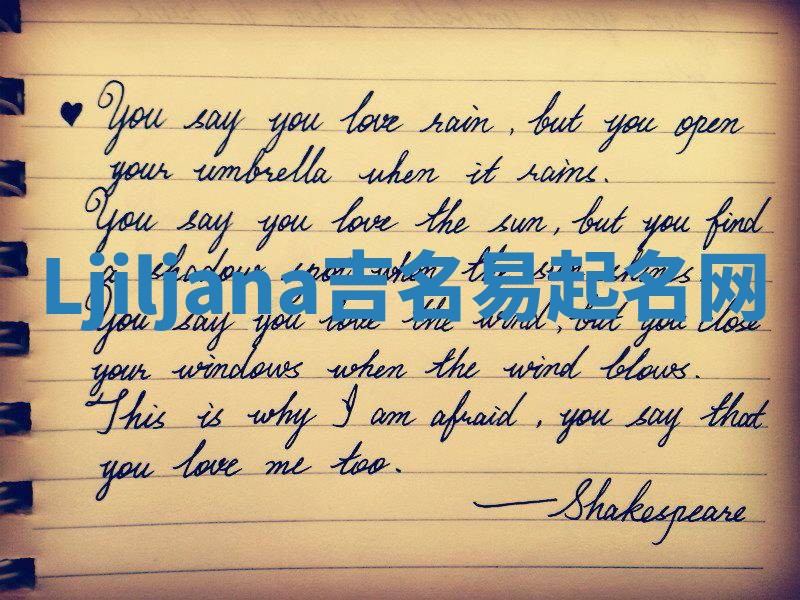 ♥ You say you love rain, but you open
your umbrella when it rains.
You say you love the sun, but you find
a shadow spot when the sun shines
Ljiljana吉名易起名网
You say you love the wind, but you close
your windows when the wind blows.
This is why I am afraid, you say that
you love me too.
—Shakespeare